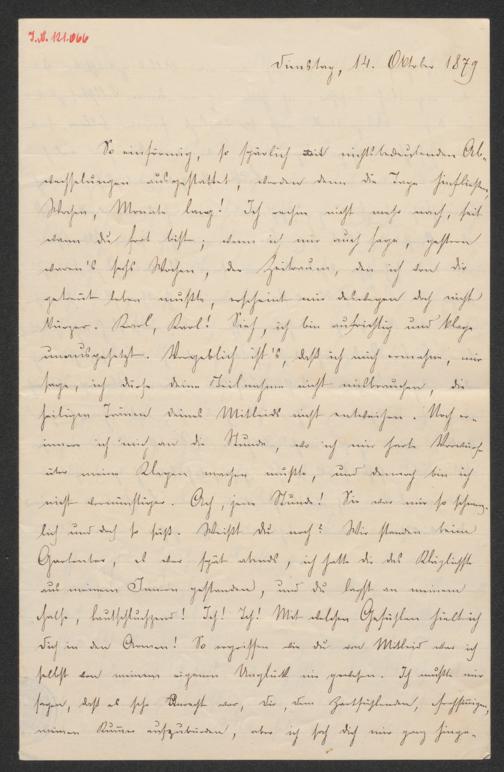 I.N. 121.066
Dienstag, 14. Oktober 1879
So einförmig, so spärlich mit nichtsbedeutenden Ab-
wechselungen ausgestattet, werden denn die Tage hinfließen,
Wochen, Monate lang! Ich rechne nicht mehr nach, seit
wann du fort bist; wenn ich mir auch sage, gestern
waren's sechs Wochen, der Zeitraum, den ich von dir
getrennt leben mußte, erscheint mir deswegen doch nicht
kürzer. Karl, Karl! Sieh, ich bin aufrichtig und klage
unausgesetzt. Vergeblich ist's, daß ich mich ermahne, mir
sage, ich dürfe deine Teilnahme nicht misbrauchen, die
heiligen Tränen deines Mitleids nicht entweihen. Noch er-
innere ich mich an die Stunde, wo ich mir harte Vorwürfe
über meine Klagen machen mußte, und dennoch bin ich
nicht vernünftiger. Ach, jene Stunde! Sie war mir so schmerz-
lich und doch so süß. Weißt du noch? Wir standen beim
Gartentor, es war spät abends, ich hatte dir das Kläglichste
aus meinem Innern gestanden, und du lagst an meinem
Halse, lautschluchzend! Ich! Ich! Mit welchen Gefühlen hielt ich
dich in den Armen! So ergriffen wie du von Mitleid war ich
selbst von meinem eigenen Unglück nie gewesen. Ich mußte mir
sagen, daß es sehr Unrecht war, dir, dem Zartfühlenden,
meinen Kummer aufzubürden, aber ich sah dich mir ganz hinge-